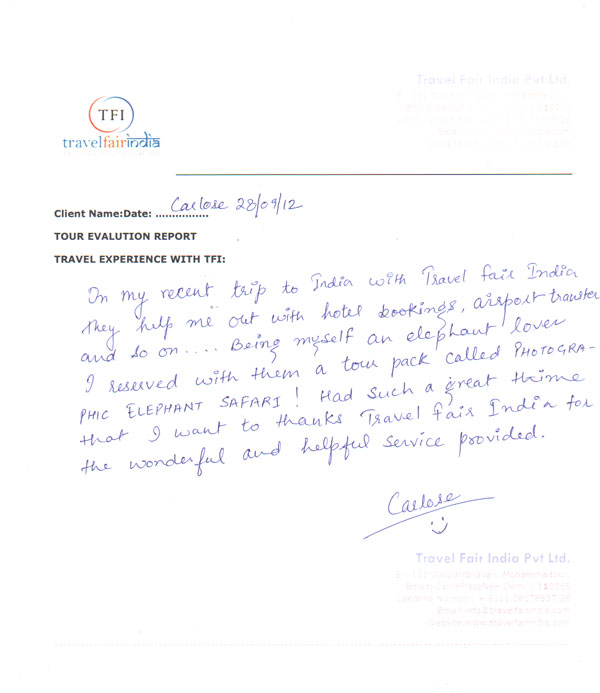 Travel Fair India Pvt Ltd.
TFI
travelfairindia
Client Name:Date: ................ Carlose 28/09/12
TOUR EVALUTION REPORT
TRAVEL EXPERIENCE WITH TFI:
In my recent trip to India with Travel fair India
they help me out with hotel bookings, airport transfer
and so on.... Being myself an elephant lover
I reserved with them a tour pack called PHOTOGRA-
PHIC ELEPHANT SAFARI! Had such a great thime
that I want to thanks Travel fair India for
the wonderful and helpful service provided.
Carlose
Travel Fair India Pvt Ltd.
Muhammadpur,
Email: info@travelfairindia.com
Website: www.travelfairindia.com